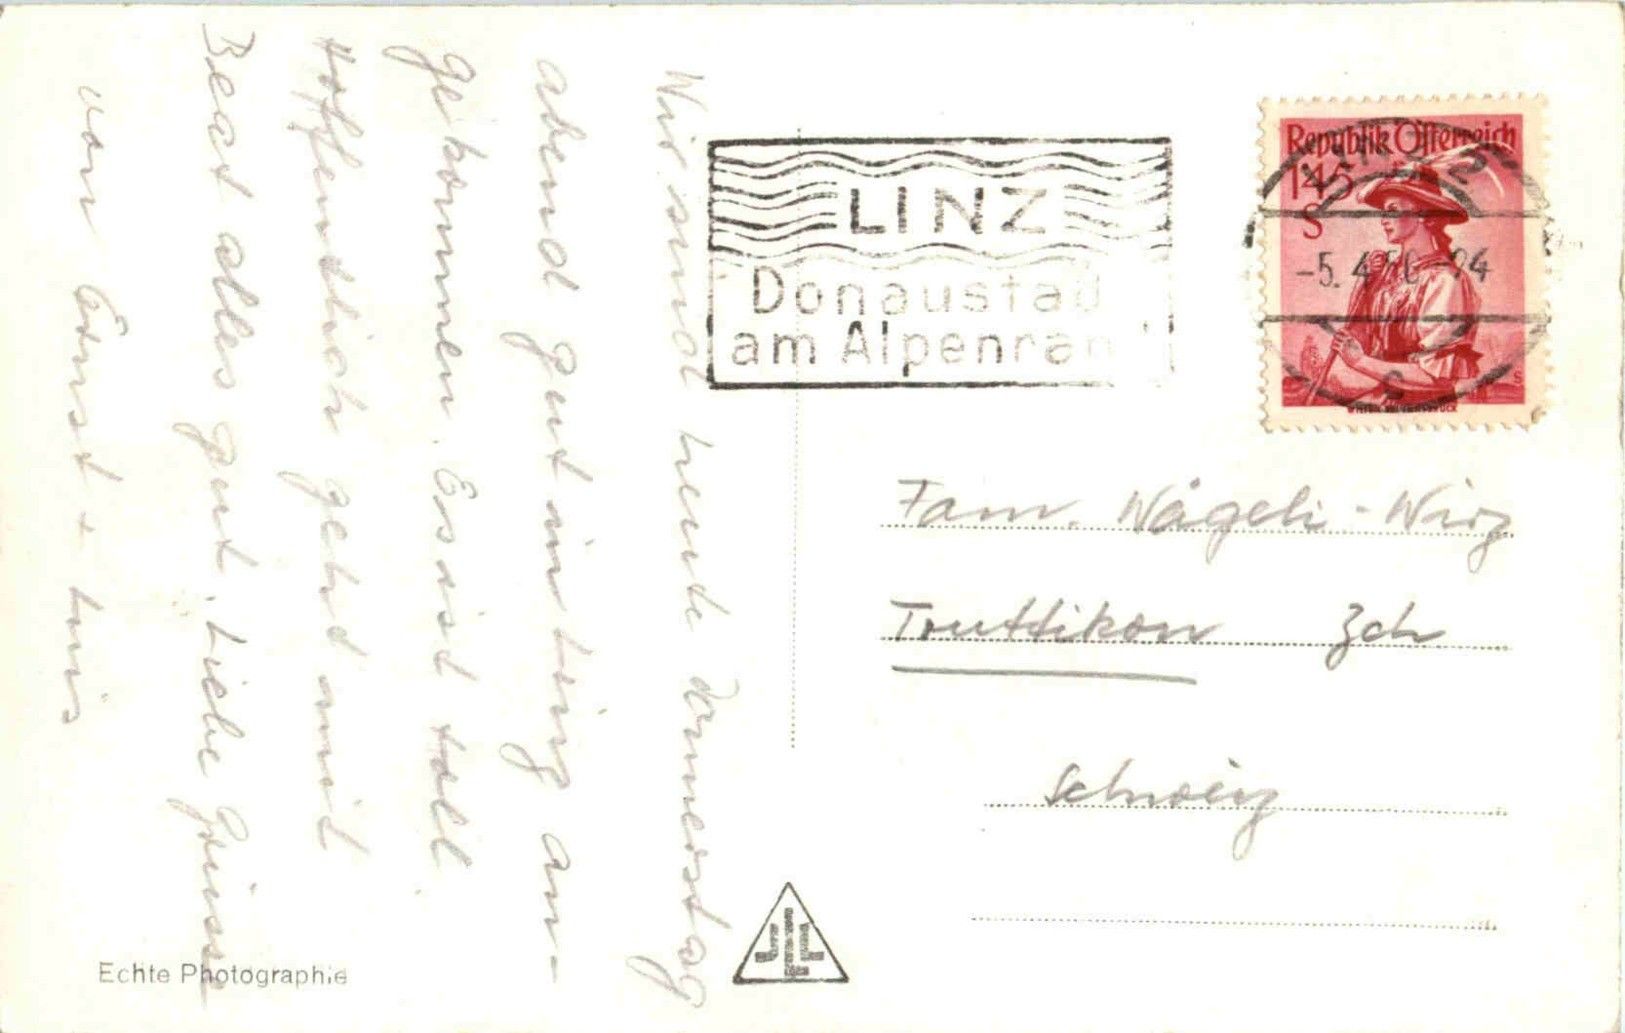 Wir sind heute Donnerstag
abend gut in Linz an-
gekommen. Es ist toll
Hoffentlich geht mit
Beat alles gut. Liebe Grüsse
von Ernst +
LINZ
Donaustad
am Alpenran
Republik Österreich
1.45
S
LINZ 2
-5. 4.56 -24
Fam. Nägeli-Wirz
Truttikon Zch
Schweiz
Echte Photographie